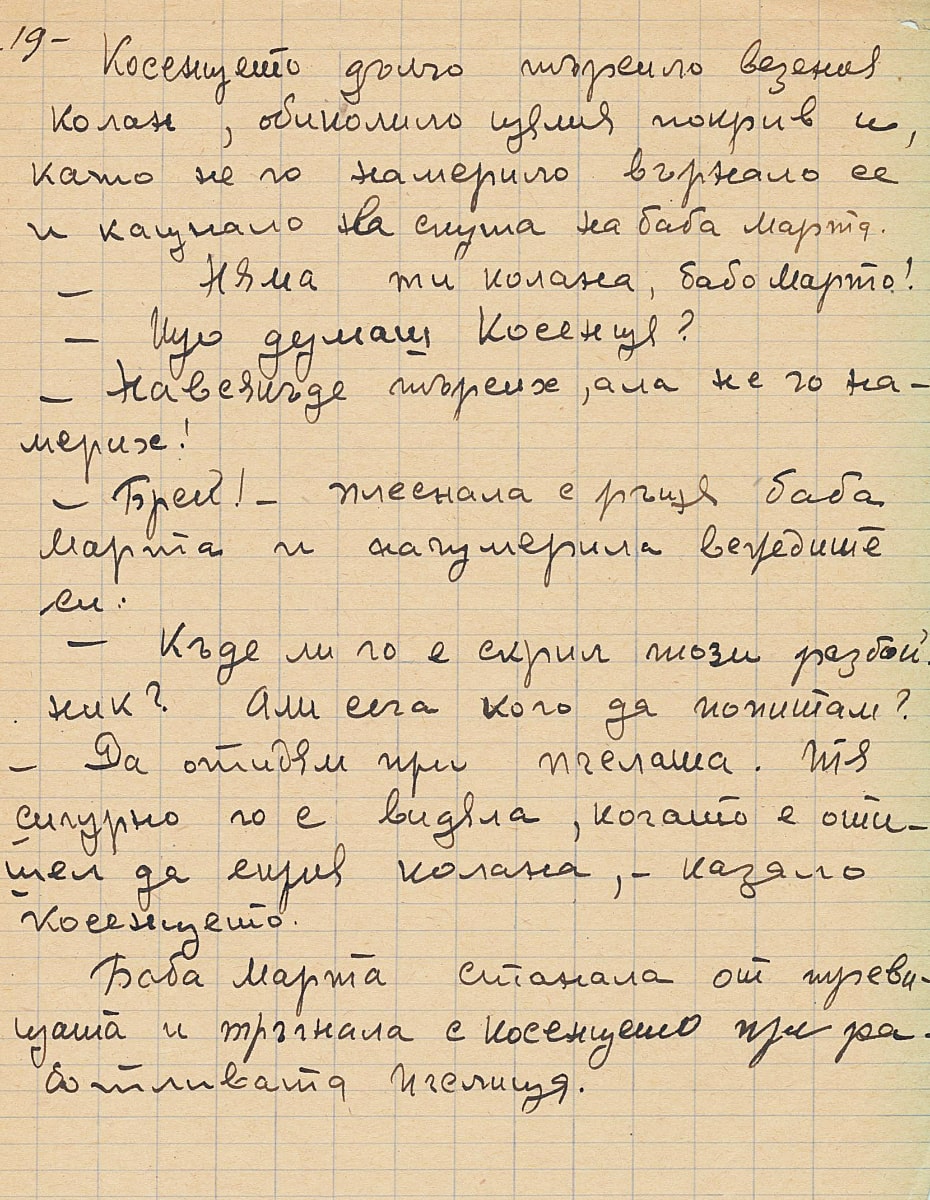 19-
Косенцето дълго търсило везения
колан, обиколило целия покрив и,
като не го намерило върнало се
и кацнало на скута на баба Марта.
— Няма ти колана, бабо Марто!
— Що думаш Косенце?
— Навсякъде търсих, ала не го на-
мерих!
— Брей! – плеснала с ръце баба
Марта и начумерила веждите
си.
— Къде ли го е скрил този разбой-
ник? Ами сега кого да попитам?
— Да отидем при пчелата. Тя
сигурно го е видяла, когато е оти-
шел да скрия колана, – казало
Косенцето.
Баба Марта станала от треви-
цата и тръгнала с косенцето при ра-
ботливата пчелица.